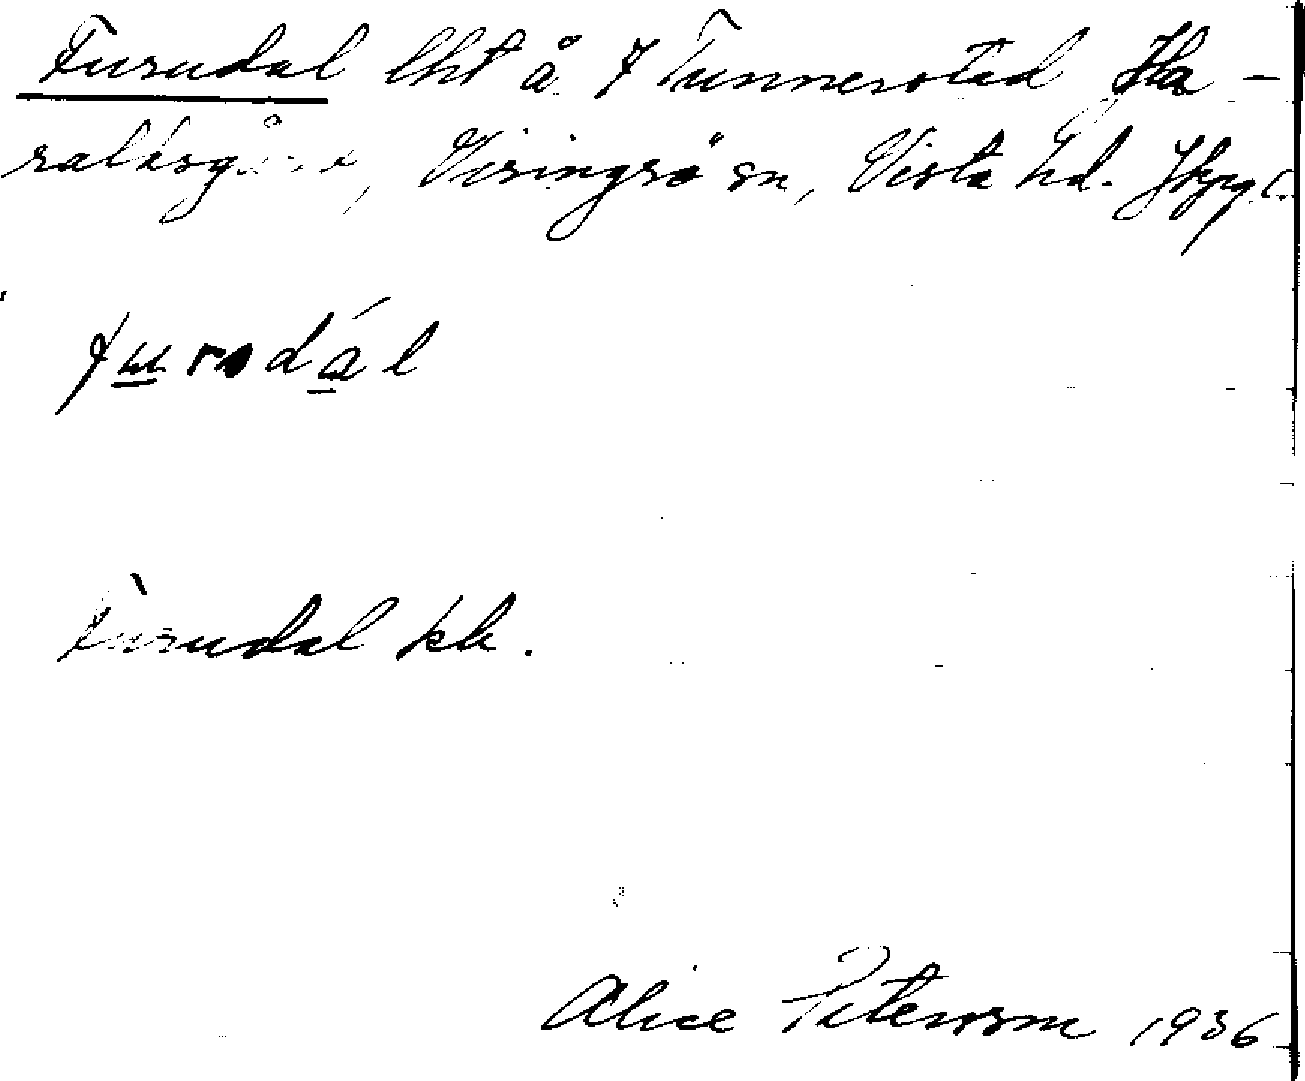 Furudal lht å f Tunnerstad Ha-
raldsgård, Visingsö sn, Vista hd. Jkpg l.
furudál
Furudal kk.
Alice Petersson 1936